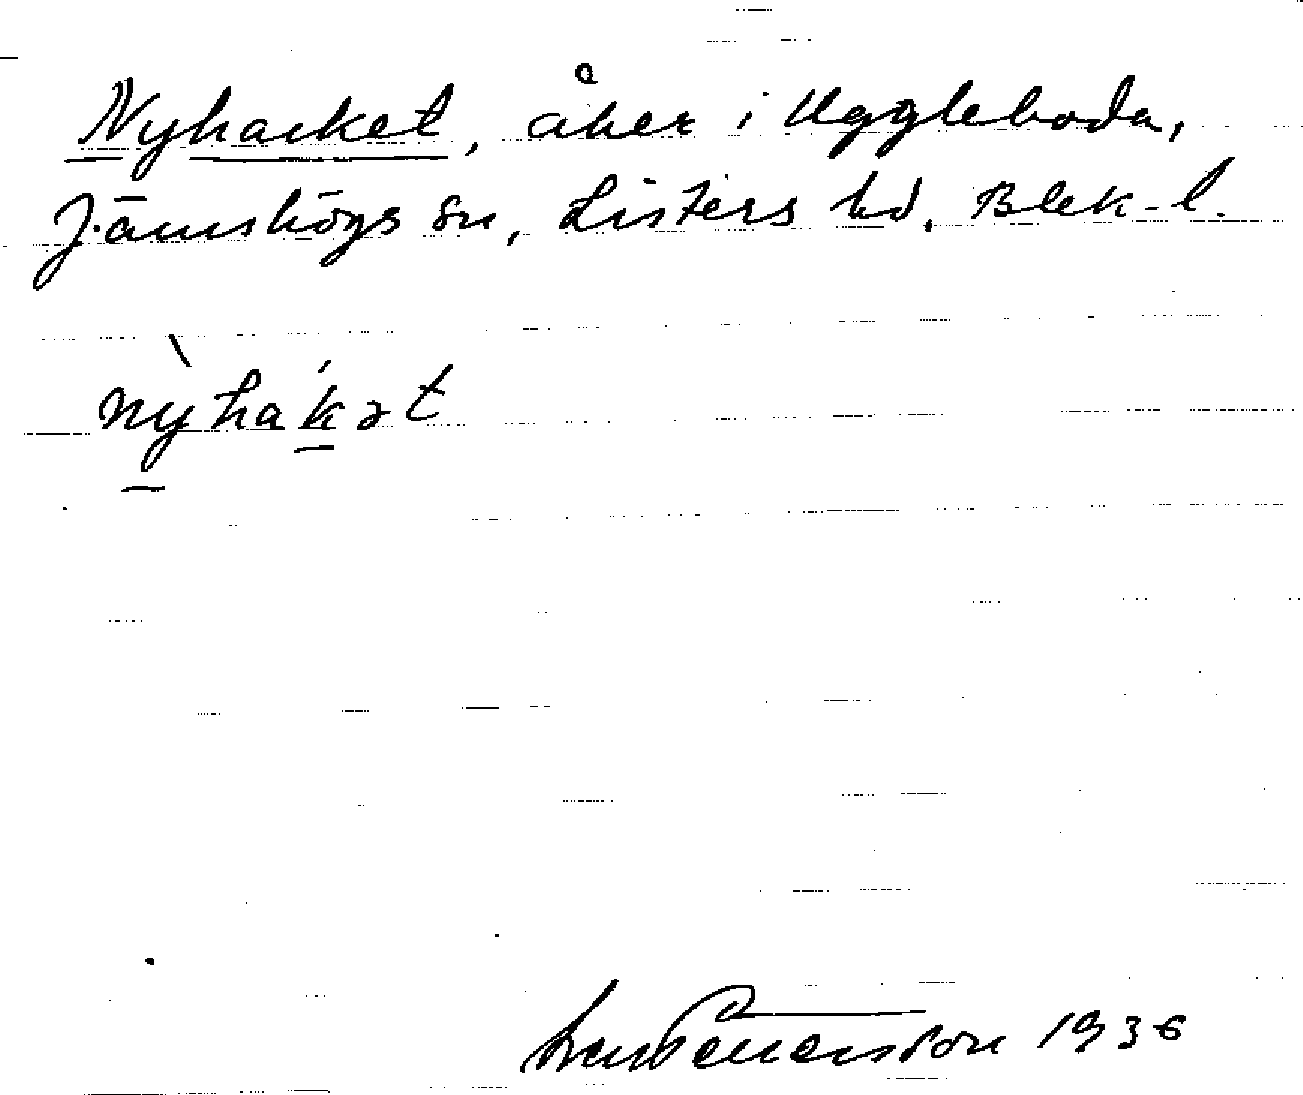 Nyhacket, åker i Uggleboda,
Jämshögs sn, Listers hd. Blek. l.
nỳhákət
1936